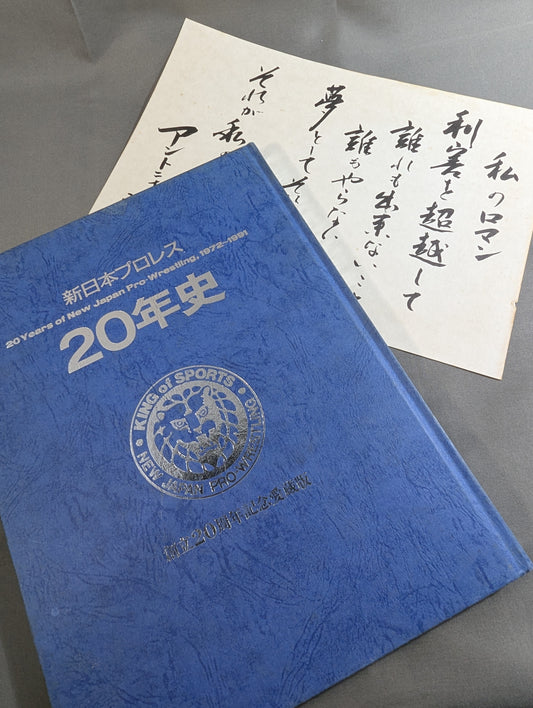 新日本プロレス
20 Years of New Japan Pro-Wrestling, 1972~1991
20年史
KING of SPORTS
NEW JAPAN PRO WRESTLING
創立20周年記念愛蔵版
私のロマン
利害を超越して
誰れも出来ない
誰もやらない
夢として
それが私
アントニ